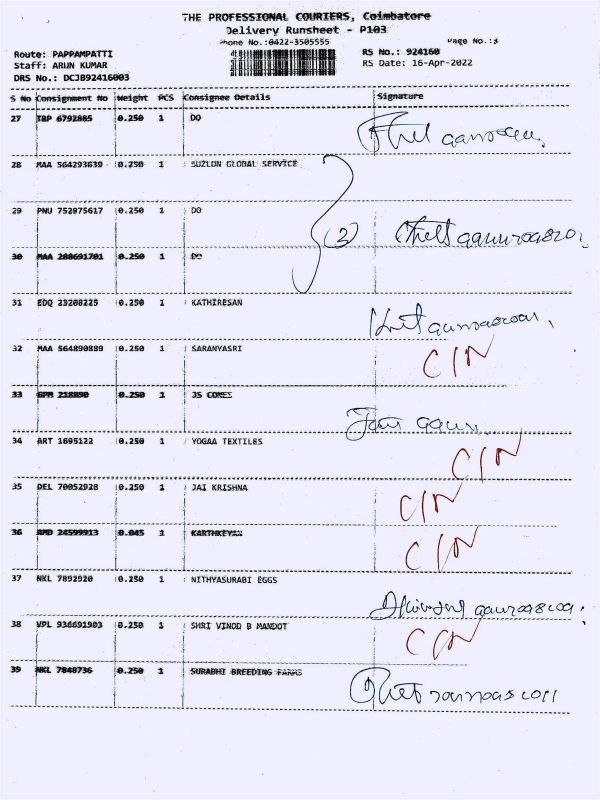 THE PROFESSIONAL COURIERS, Coimbatore
Delivery Runsheet - P103
Phone No.:0422-3505555 Page No.:3
Route: PAPPAMPATTI RS No.: 924160
Staff: ARUN KUMAR RS Date: 16-Apr-2022
DRS No.: DCJB92416003
S No Consignment No Weight PCS Consignee Details Signature
27 TRP 6792885 0.250 1 DO
28 MAA 564293639 0.250 1 SUZLON GLOBAL SERVICE
29 PNU 752975617 0.250 1 DO (2)
30 MAA 288691701 0.250 1 DO
31 EDQ 23208225 0.250 1 KATHIRESAN
32 MAA 564890889 0.250 1 SARANYASRI C/N
33 GPM 218890 0.250 1 JS CONES
34 ART 1695122 0.250 1 YOGAA TEXTILES C/N
35 DEL 70052928 0.250 1 JAI KRISHNA C/N
36 AMD 24599913 0.045 1 KARTHKEYAN C/N
37 NKL 7892920 0.250 1 NITHYASURABI EGGS
38 VPL 936691903 0.250 1 SHRI VINOD B MANDOT C/N
39 NKL 7848736 0.250 1 SURABHI BREEDING FARMS